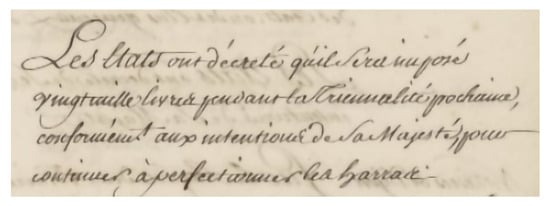 Les Etats ont décreté qu'il Sera imposé
vingt mille livres pendant la Triennalité pochaine,
conformémt. aux intentions de Sa Majesté, pour
continuer à perfectionner les harras.